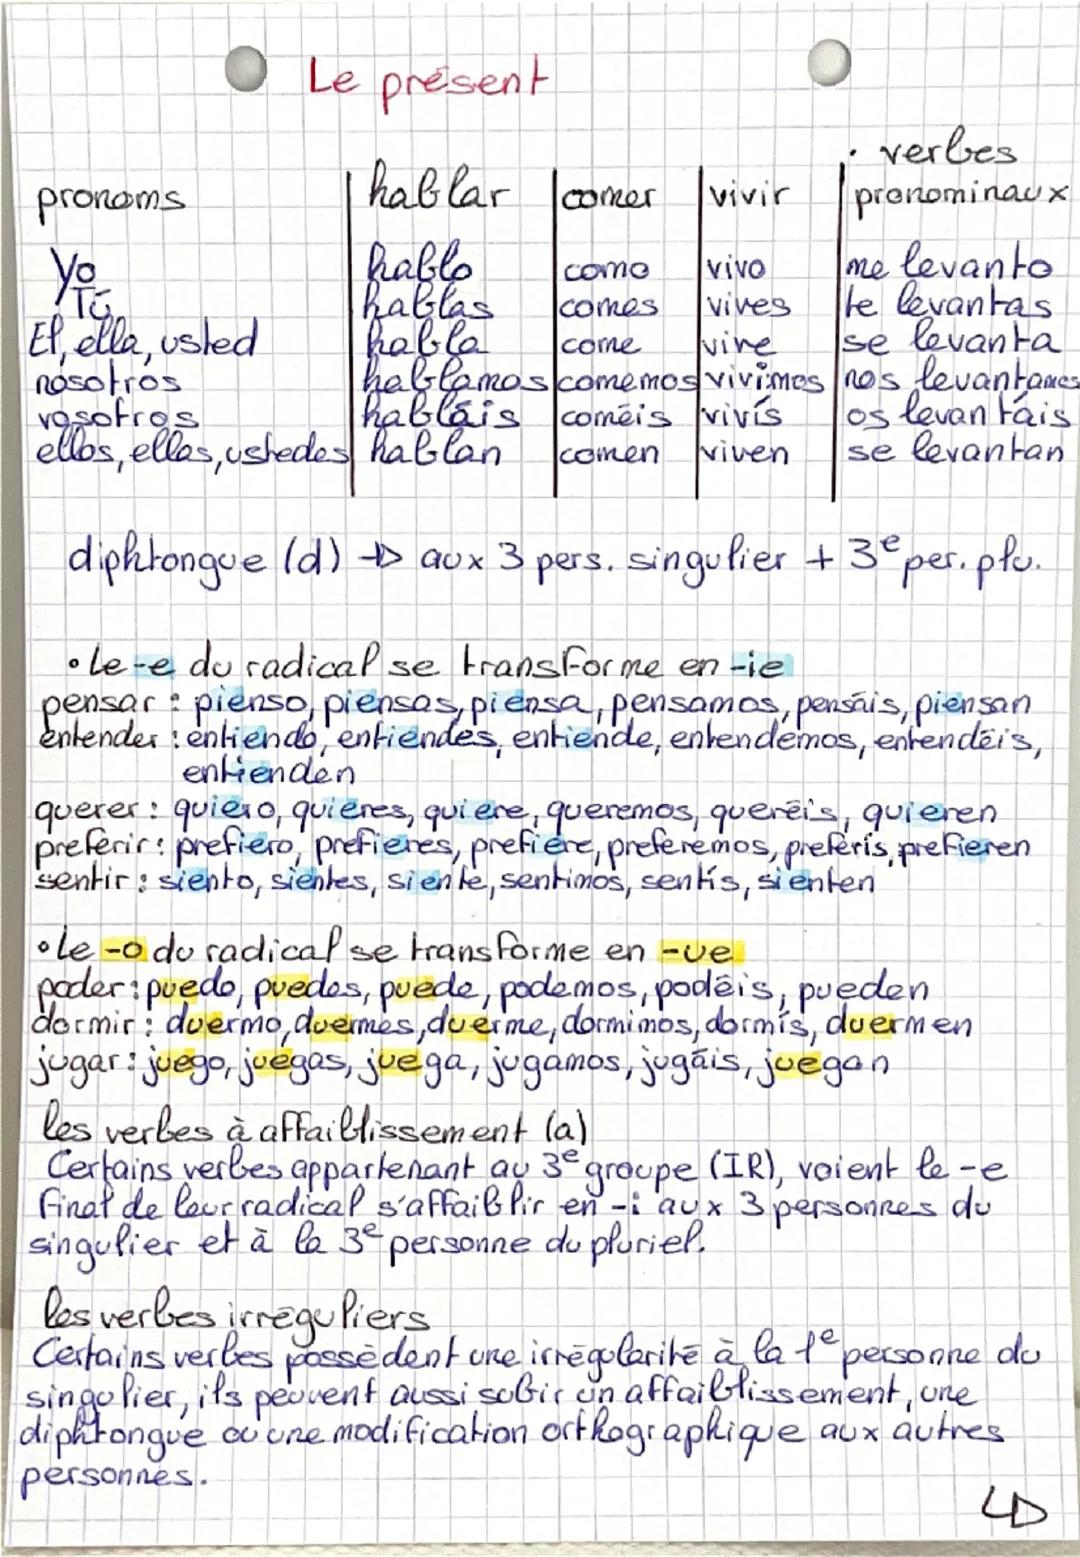 Le présent
pronoms hablar comer vivir • verbes pronominaux
Yo hablo como vivo me levanto
Tú hablas comes vives te levantas
El, ella, usted habla come vive se levanta
nosotros hablamos comemos vivimos nos levantamos
vosotros habláis coméis vivís os levantáis
ellos, ellas, ustedes hablan comen viven se levantan
diphtongue (d) → aux 3 pers. singulier + 3e per. plu.
• Le -e du radical se transforme en -ie
pensar : pienso, piensas, piensa, pensamos, pensáis, piensan
entender : entiendo, entiendes, entiende, entendemos, entendéis,
entienden
querer : quiero, quieres, quiere, queremos, queréis, quieren
preferir : prefiero, prefieres, prefiere, preferemos, preferís, prefieren
sentir : siento, sientes, siente, sentimos, sentís, sienten
• Le -o du radical se transforme en -ue
poder : puedo, puedes, puede, podemos, podéis, pueden
dormir : duermo, duermes, duerme, dormimos, dormís, duermen
jugar : juego, juegas, juega, jugamos, jugáis, juegan
les verbes à affaiblissement (a)
Certains verbes appartenant au 3e groupe (IR), voient le -e
final de leur radical s'affaiblir en -i aux 3 personnes du
singulier et à la 3e personne du pluriel.
les verbes irréguliers
Certains verbes possèdent une irrégularité à la 1e personne du
singulier, ils peuvent aussi subir un affaiblissement, une
diphtongue ou une modification orthographique aux autres
personnes.